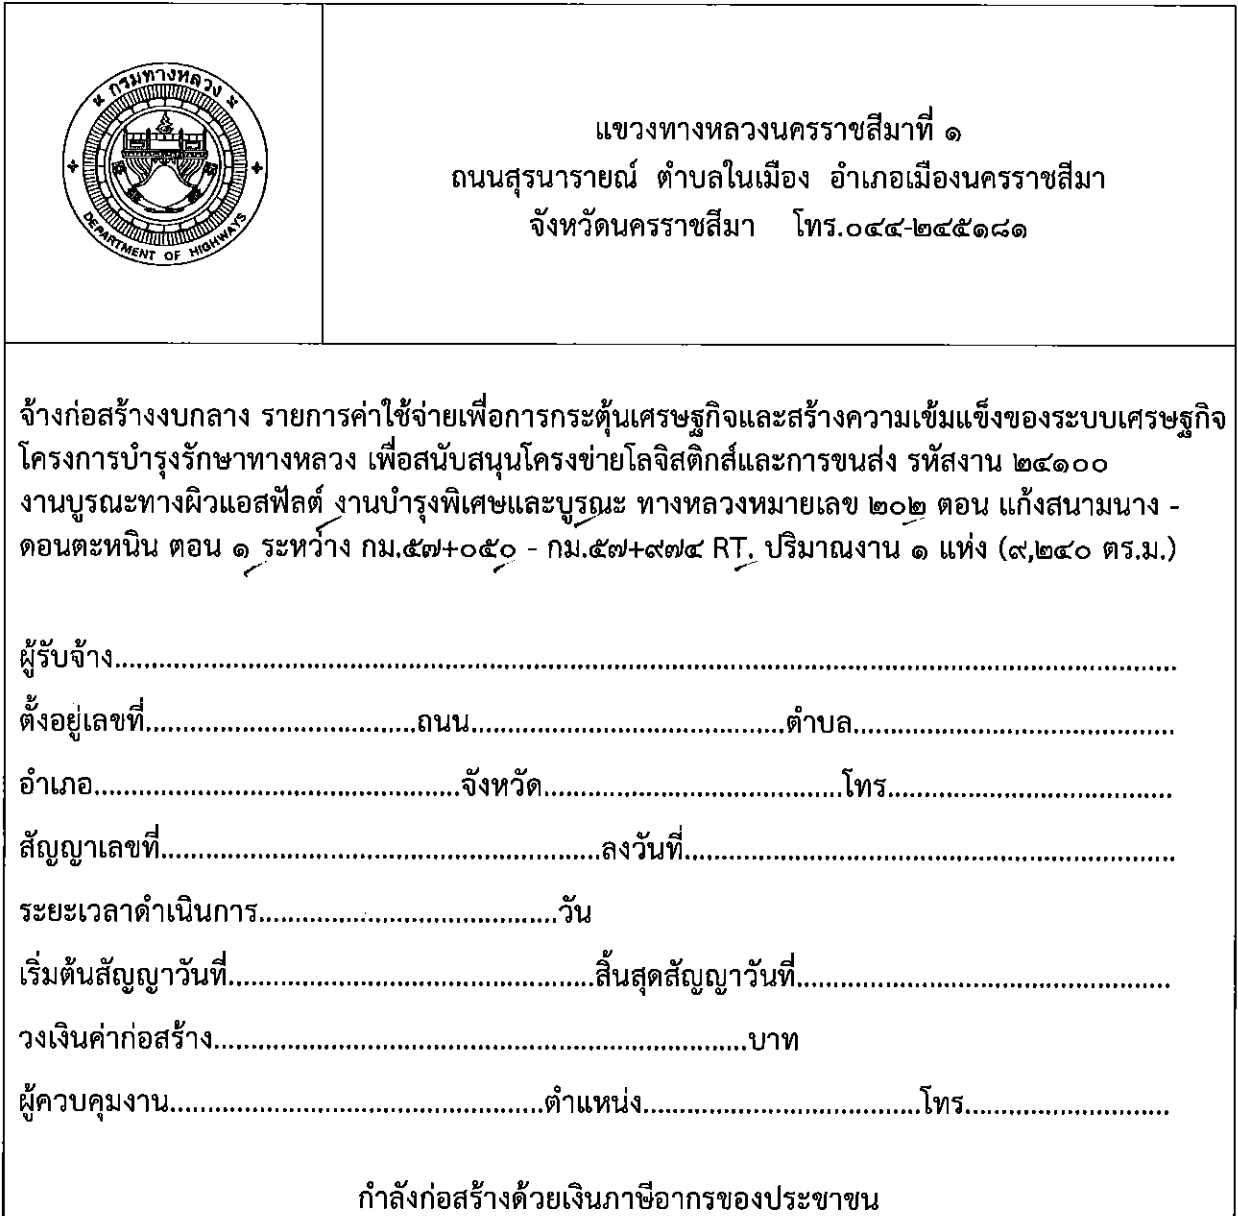 กรมทางหลวง
DEPARTMENT OF HIGHWAYS
แขวงทางหลวงนครราชสีมาที่ ๑
ถนนสุรนารายณ์ ตำบลในเมือง อำเภอเมืองนครราชสีมา
จังหวัดนครราชสีมา โทร.๐๔๔-๒๔๕๑๘๑
จ้างก่อสร้างงบกลาง รายการค่าใช้จ่ายเพื่อการกระตุ้นเศรษฐกิจและสร้างความเข้มแข็งของระบบเศรษฐกิจ
โครงการบำรุงรักษาทางหลวง เพื่อสนับสนุนโครงข่ายโลจิสติกส์และการขนส่ง รหัสงาน ๒๔๑๐๐
งานบูรณะทางผิวแอสฟัลต์ งานบำรุงพิเศษและบูรณะ ทางหลวงหมายเลข ๒๐๒ ตอน แก้งสนามนาง -
ดอนตะหนิน ตอน ๑ ระหว่าง กม.๕๗+๐๕๐ - กม.๕๗+๙๗๔ RT. ปริมาณงาน ๑ แห่ง (๙,๒๔๐ ตร.ม.)
ผู้รับจ้าง....................
ตั้งอยู่เลขที่....................ถนน....................ตำบล....................
อำเภอ....................จังหวัด....................โทร....................
สัญญาเลขที่....................ลงวันที่....................
ระยะเวลาดำเนินการ....................วัน
เริ่มต้นสัญญาวันที่....................สิ้นสุดสัญญาวันที่....................
วงเงินค่าก่อสร้าง....................บาท
ผู้ควบคุมงาน....................ตำแหน่ง....................โทร....................
กำลังก่อสร้างด้วยเงินภาษีอากรของประชาชน